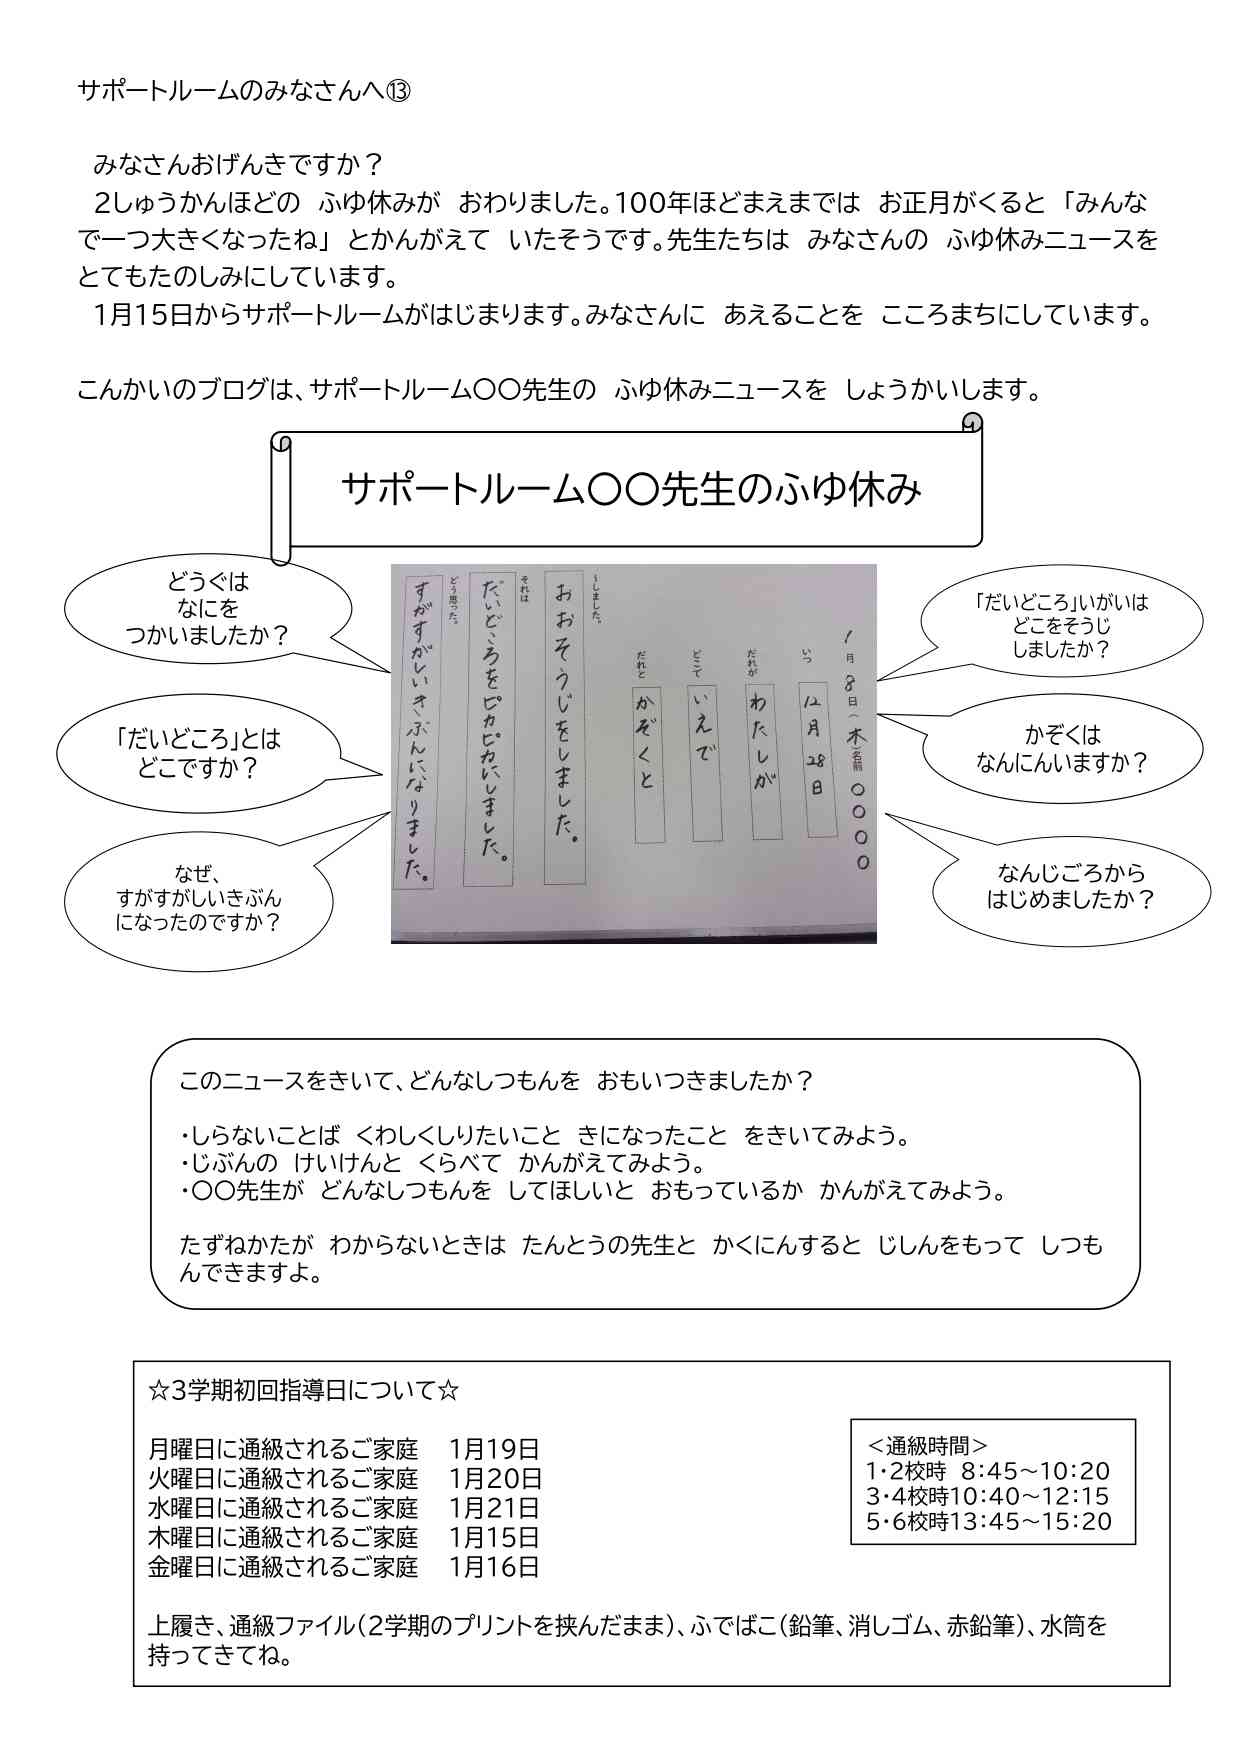 サポートルームのみなさんへ⑬
みなさんおげんきですか？
2しゅうかんほどの ふゆ休みが おわりました。100年ほどまえまでは お正月がくると「みんな
で一つ大きくなったね」とかんがえて いたそうです。先生たちは みなさんの ふゆ休みニュースを
とてもたのしみにしています。
1月15日からサポートルームがはじまります。みなさんに あえることを こころまちにしています。
こんかいのブログは、サポートルーム〇〇先生の ふゆ休みニュースを しょうかいします。
サポートルーム〇〇先生のふゆ休み
どうぐは
なにを
つかいましたか？
「だいどころ」とは
どこですか？
なぜ、
すがすがしいきぶん
になったのですか？
1月8日（木）名前 〇〇〇〇
いつ
12月28日
だれが
わたしが
どこで
いえで
だれと
かぞくと
～しました。
おおそうじをしました。
それは
だいどころをピカピカにしました。
どう思った。
すがすがしいきぶんになりました。
「だいどころ」いがいは
どこをそうじ
しましたか？
かぞくは
なんにんいますか？
なんじごろから
はじめましたか？
このニュースをきいて、どんなしつもんを おもいつきましたか？
・しらないことば くわしくしりたいこと きになったこと をきいてみよう。
・じぶんの けいけんと くらべて かんがえてみよう。
・〇〇先生が どんなしつもんを してほしいと おもっているか かんがえてみよう。
たずねかたが わからないときは たんとうの先生と かくにんすると じしんをもって しつも
んできますよ。
☆3学期初回指導日について☆
月曜日に通級されるご家庭 1月19日
火曜日に通級されるご家庭 1月20日
水曜日に通級されるご家庭 1月21日
木曜日に通級されるご家庭 1月15日
金曜日に通級されるご家庭 1月16日
＜通級時間＞
1・2校時 8:45～10:20
3・4校時10:40～12:15
5・6校時13:45～15:20
上履き、通級ファイル（2学期のプリントを挟んだまま）、ふでばこ（鉛筆、消しゴム、赤鉛筆）、水筒を
持ってきてね。